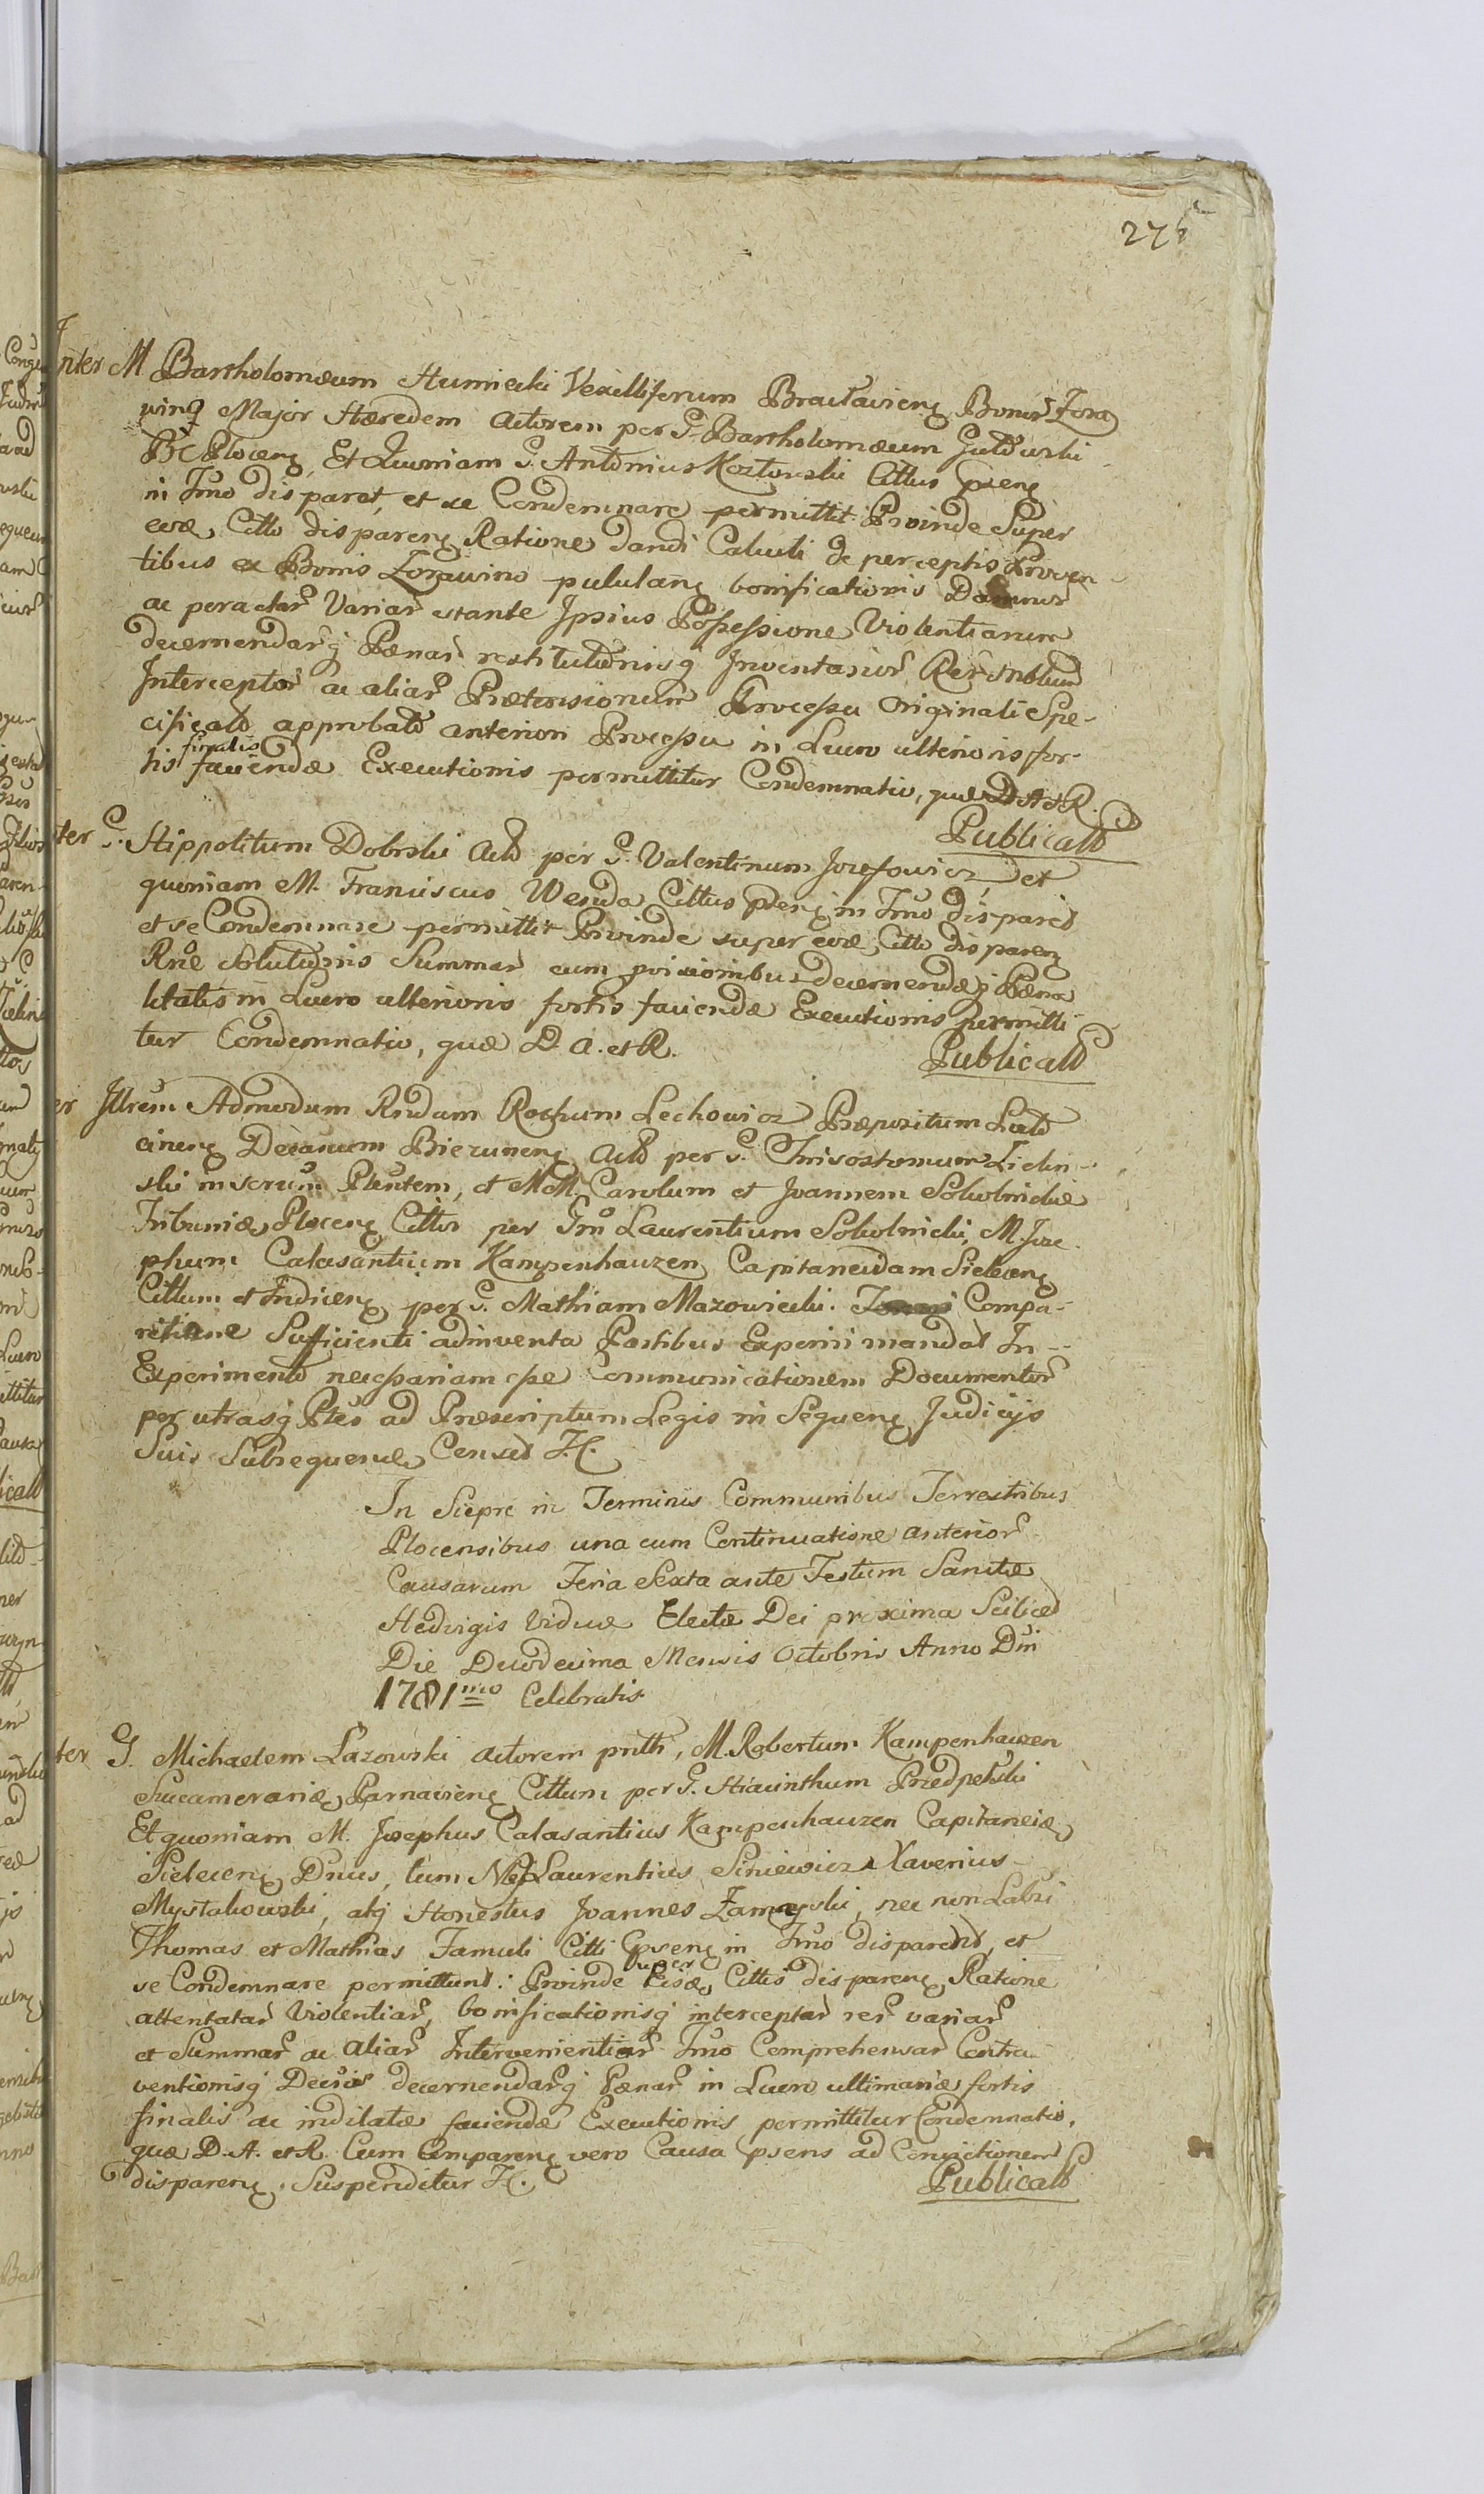 275
Inter M Bartholomæum Humiecki Vexilliferum Bracłavieng Bonor Zora
wino Major Hæredem Actorem per G. Bartholomæum Gutowski
BC Ploceng, Et Quoniam G. Antonius Kozłowski Cittus pseng
in Tmo disparet, et se Condemnare permittit Proinde Super
eoæ Citto dispareng Ratione dandi Calculi de perceptis Proven
tibus ex Bonis Zorawino pululang bonificationis Damnor
ac peractar Variar stante Ipsius Possessione Violentiarum
decernendarq Pænar restitutionisq Inventarior Rer mobilium
Interceptor ac aliar Prætensionum Processu Originali Spe-
cificato approbato anteriori Processu in Lucro ulterioris for-
tis finalis faciendæ Executionis permittitur Condemnatio, quæ D A et R.
Publicato
ter G. Hippolitum Dobrski Acto per G. Valentinum Jozefowicz et
quoniam M. Franciscus Wenda Cittus pseng in Tmo disparet
et se Condemnare permittit Proinde super eoæ Citto dispareng
Rne Solutionis Summar cum provisionibus decernendæq Pæna
litatis in Lucro ulterioris fortis faciendæ Executionis permitti
tur Condemnatio, quæ D. A. et R.
Publicato
er Illrem Admodum Rndum Rochum Lechowicz Præpositum
cineng Decanum Bieżuneng Acto per G. Chrisostomum Zielin-
ski in serum Plentem, et MM Carolum et Joannem Sokolnickie
Tribunidæ Ploceng Cittos per Gm Laurentium Sokolnicki, M. Joze
phum Calasantium Kampenhauzen Capitaneidam Sieleceng
Cittum et Indiceng per G. Mathiam Mazowiecki. Compa-
ritione Sufficienti adinventa Partibus Experiri mandat In-
Experimento necessariam esse Communicationem Documentor
per utrasq Ptes ad Præscriptum Legis in Sequeng Judicijs
Suis Subsequeng Censet H.
In Sierpc in Terminis Communibus Terrestribus
Plocensibus una cum Continuatione anterior
Causarum Feria Sexta ante Festum Sanctæ
Hedvigis Viduæ Electæ Dei proxima Scilicet
Die Duodecima Mensis Octobris Anno Dni
1781mo Celebratis
ter G. Michaelem Lazowski actorem pntti, M. Robertum Kampenhauzen
Succamerariæ Parnavieng Cittum per G. Hiacinthum Przedpełski
Et quoniam M. Josephus Calasantius Kampenhauzen Capitaneiæ
Sieleceng Dnus, tum Laurentius Siniewicz Xaverius
Mystakowski, atq Honestus Joannes Zamoyski, nec non Labri
Thomas et Mathias Famuli Citti pseng in Tmo disparent, et
se Condemnare permittunt: Proinde super Eisæ Cittis dispareng Ratione
attentatar Violentiar, bonificationisq interceptar rer variar
et Summar ac aliar Intervenientiar Tmo Comprehensar Contra
ventionisq Decis decernendarq Pænar in Lucro ultimariæ fortis
finalis ac indilatæ faciendæ Executionis permittitur Condemnatio,
quæ D. A. et R. Cum Compareng vero Causa psens ad Convictionem
dispareng Suspenditur H.
Publicato